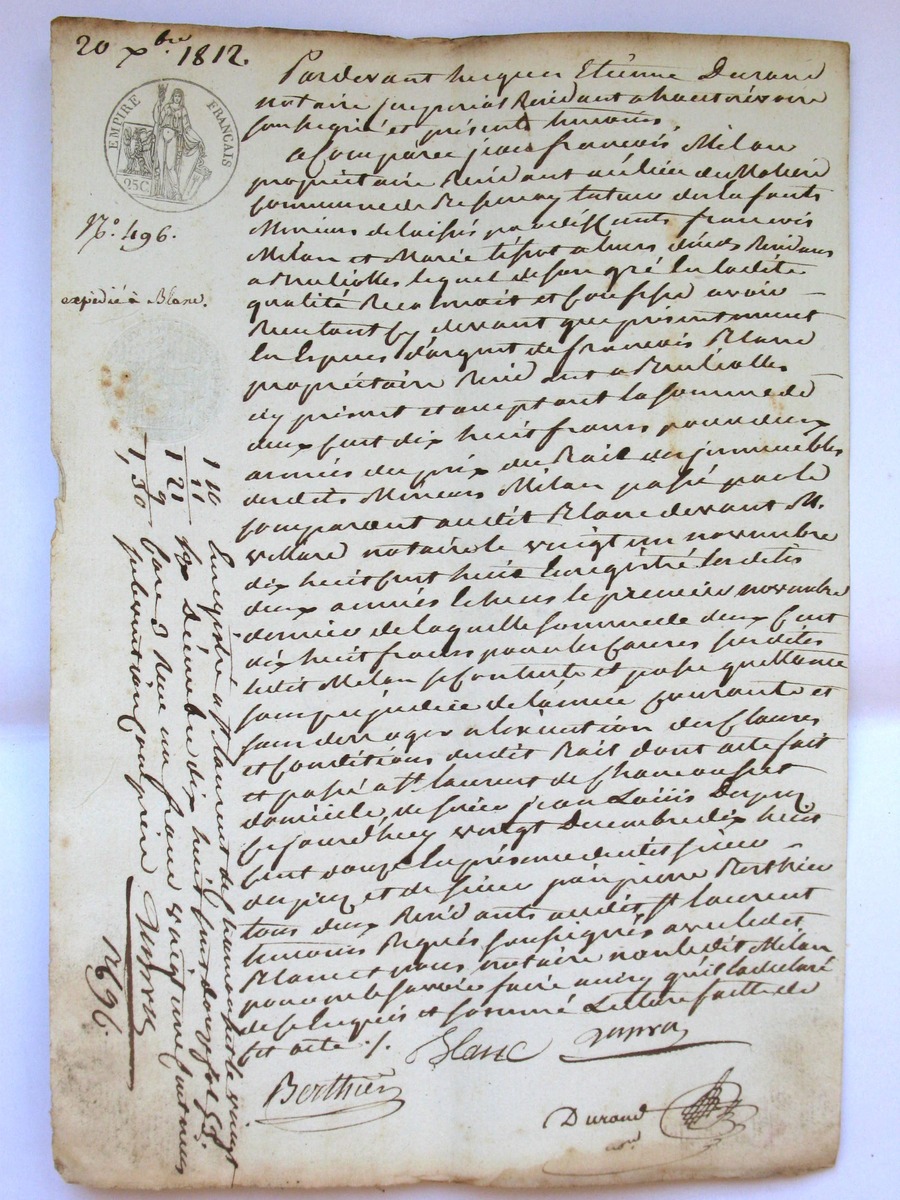 20 xbre 1812.
EMPIRE FRANÇAIS
25C
No. 496.
expédié à Blanc.
Pardevant Etienne Durand
notaire impérial Résidant a hauterivoire
soussigné et présents témoins.
a Comparu jean françois Milan
propriétaire Résidant au lieu du
commune de tuteur des Enfants
Mineurs délaissés par déffunts françois
Milan et Marie a leurs décès Résidans
a Brulliolles lequel de son gré En ladite
qualité Reconnoit et Confesse avoir
Reçu tant Cy devant que présentement
En Espèces d'argent de françois Blanc
propriétaire Résidant a Brulliolles
Cy présent et acceptant la somme de
deux Cent dix huit francs pour deux
années du prix du Bail des jmmeubles
desdits Mineurs Milan passé par le
Comparant audit Blanc devant M.
Villard notaire le vingt un novembre
dix huit Cent huit Enregistré lesdites
deux années Echues le premier novembre
dernier de laquelle somme de deux Cent
dix huit francs pour les Causes susdites
ledit Milan se Contente et passe quittance
sans préjudice de l'année Courante et
sans déroger a l'exécution des Clauses
et Conditions dudit Bail dont acte fait
et passé a St. laurent de Chamousset
domicile de sieur jean Louis Dupuy
Ce jourd'huy vingt Décembre dix huit
Cent douze En présence dudit sieur
Dupuy et de sieur jean pierre Berthier
tous deux Résidants audit St. laurent
témoins Requis soussignés avec ledit
Blanc et nous notaire non ledit Milan
pour ne le savoir faire ainsy qu'il l'a déclaré
de ce Enquis et sommé Lecture faitte de
cet acte ./.
Blanc
Berthier
Durand
not
Enregistré a St. laurent de Chamousset le vingt
six Décembre dix huit Cent douze fol 55.
Care 3 Reçu un franc vingt une Centimes
subvention Comprise
1 10
11
1 21
9
1,30
1696.